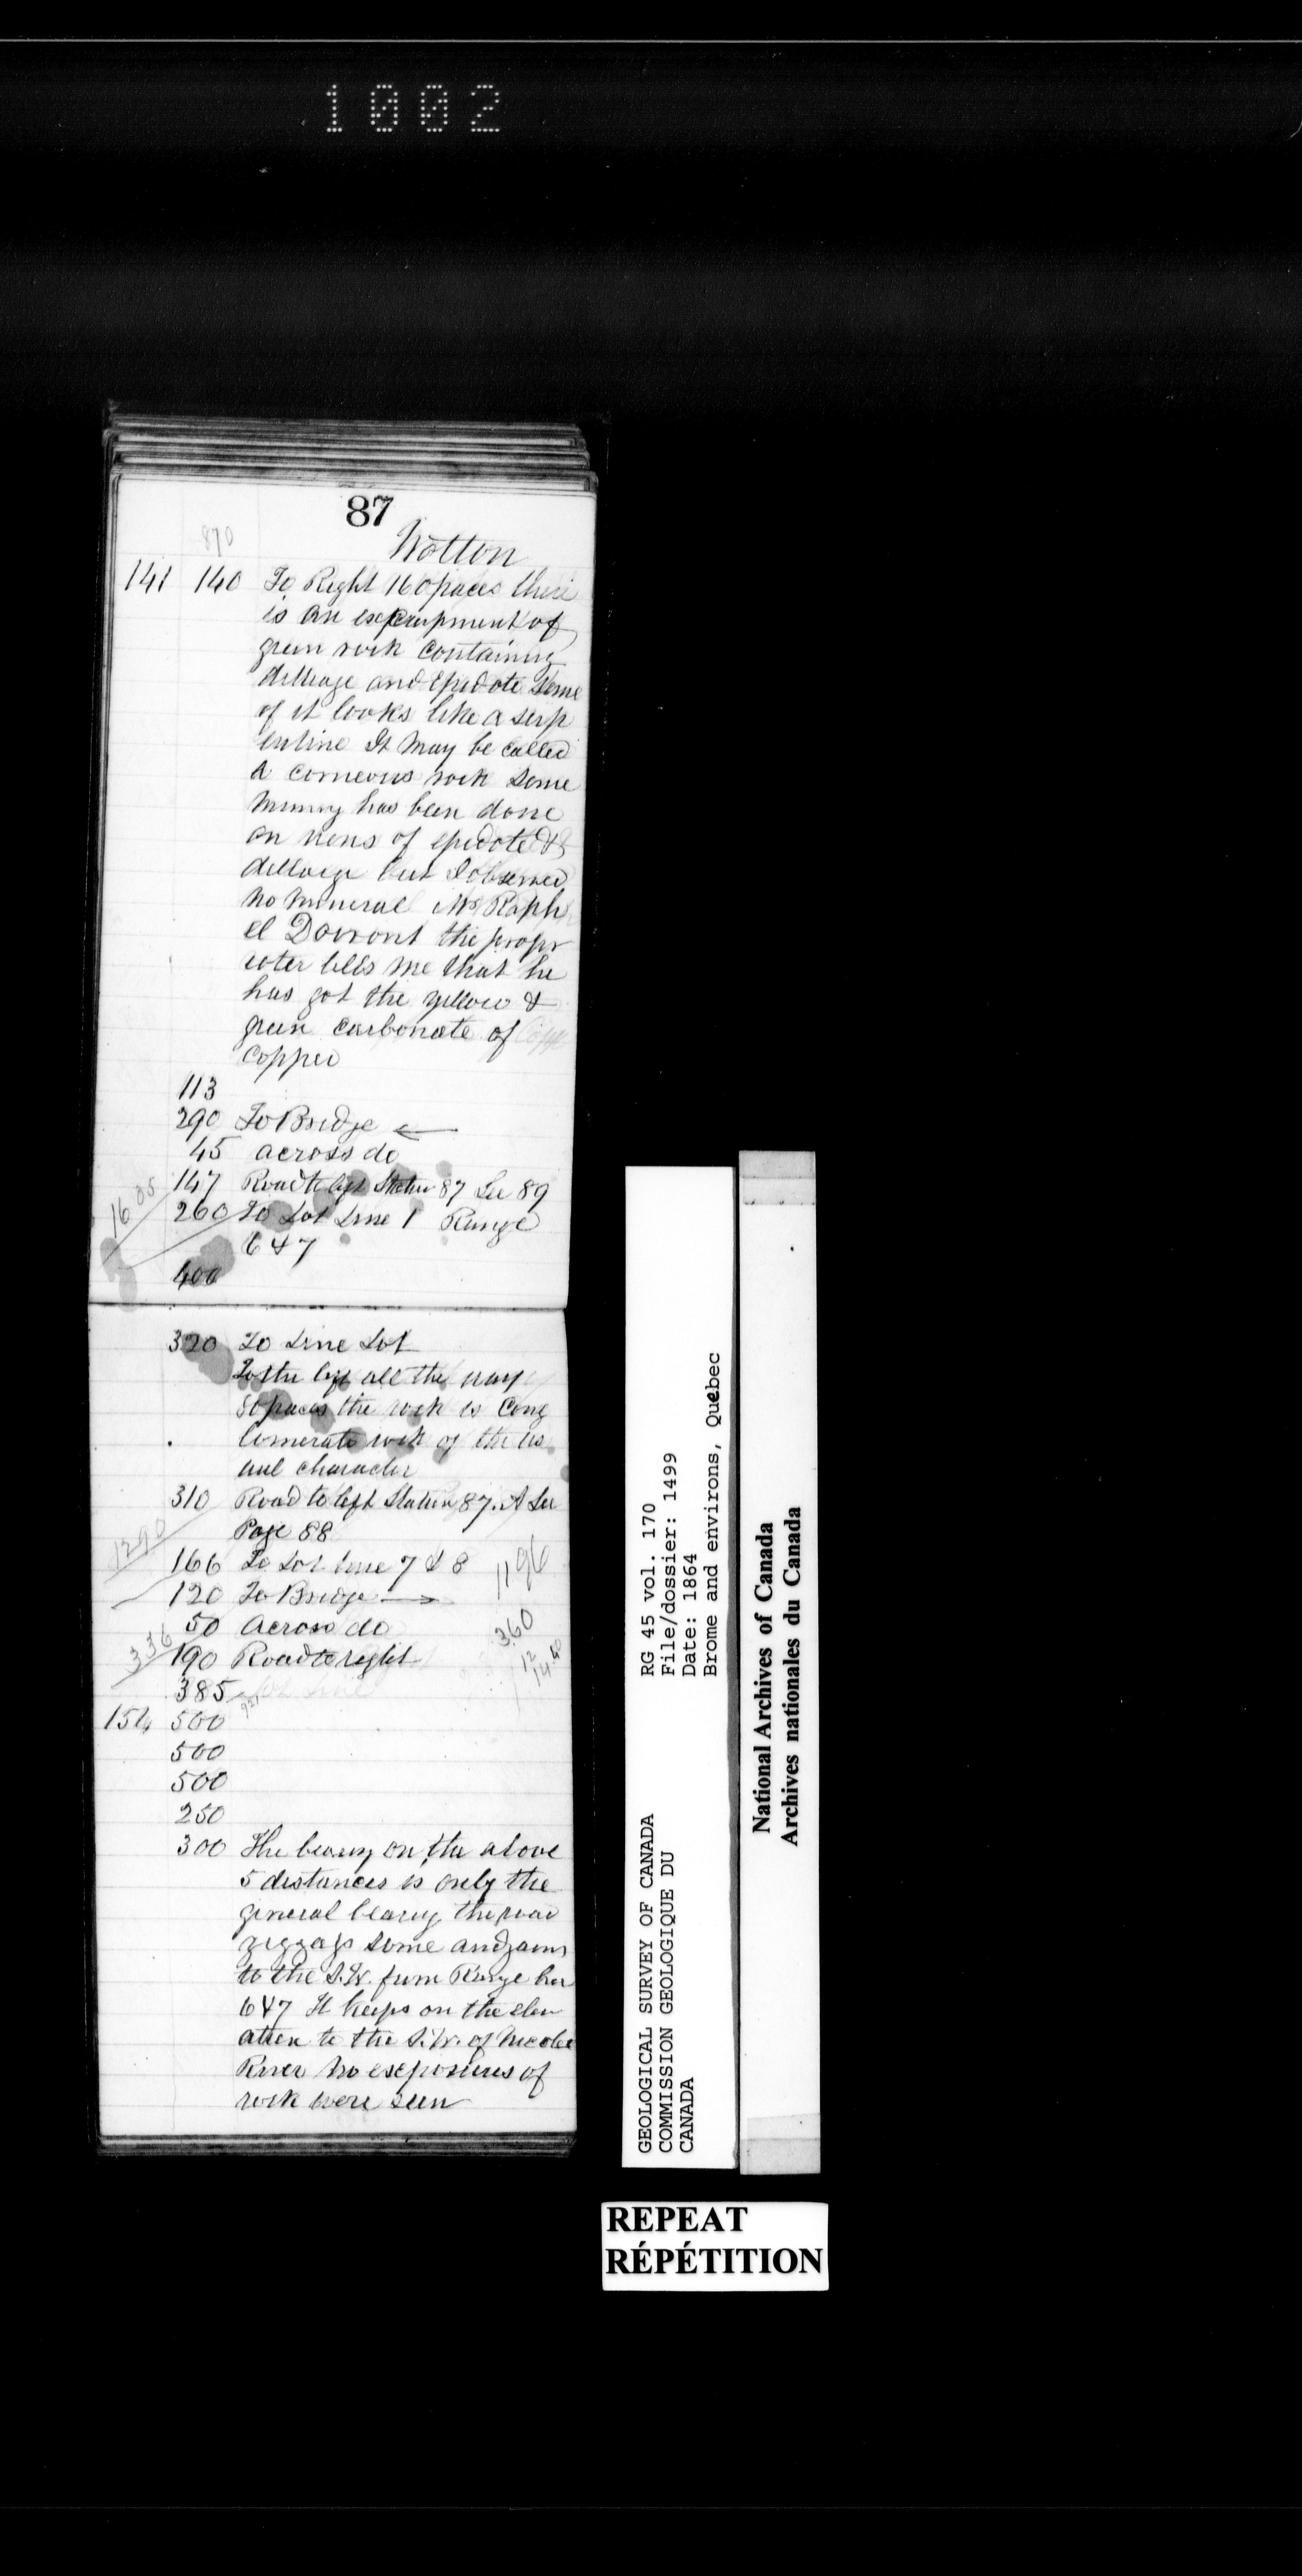 1002
87
870
Wotton
141 140 To Right 160 paces there
is an escarpment of
green rock containing
dillage and Epidote Some
of it looks like a serp
entine It may be called
a corneous rock Some
mining has been done
on viens of epidote &
dillage but I observed
no mineral Mr Raph
el Doiront the propr
ieter tells me that he
has got the yellow &
green carbonate of
copper
113
290 To Bridge ←
45 across do
147 Road to left Station 87 See 89
1605
260 To Lot Line 1 Range
6 & 7
400
320 To Line Lot
To the left all the way
80 paces the rock is Cong
lomerate rock of the us
ual character
310 Road to left Station 87.A See
Page 88
1290
166 To Lot line 7 & 8 1196
120 To Bridge →
50 Across do 360
336
190 Road to right
12
14.40
385 Lot Line
921
154 500
500
500
250
300 The bearing on the above
5 distances is only the
general bearing the road
zigzags some and
to the S.W. from Range
6 & 7 It keeps on the elev
ation to the S.W. of Nicolet
River No exposures of
rock were seen
GEOLOGICAL SURVEY OF CANADA
COMMISSION GEOLOGIQUE DU
CANADA
RG 45 vol. 170
File/dossier: 1499
Date: 1864
Brome and environs, Quebec
National Archives of Canada
Archives nationales du Canada
REPEAT
RÉPÉTITION